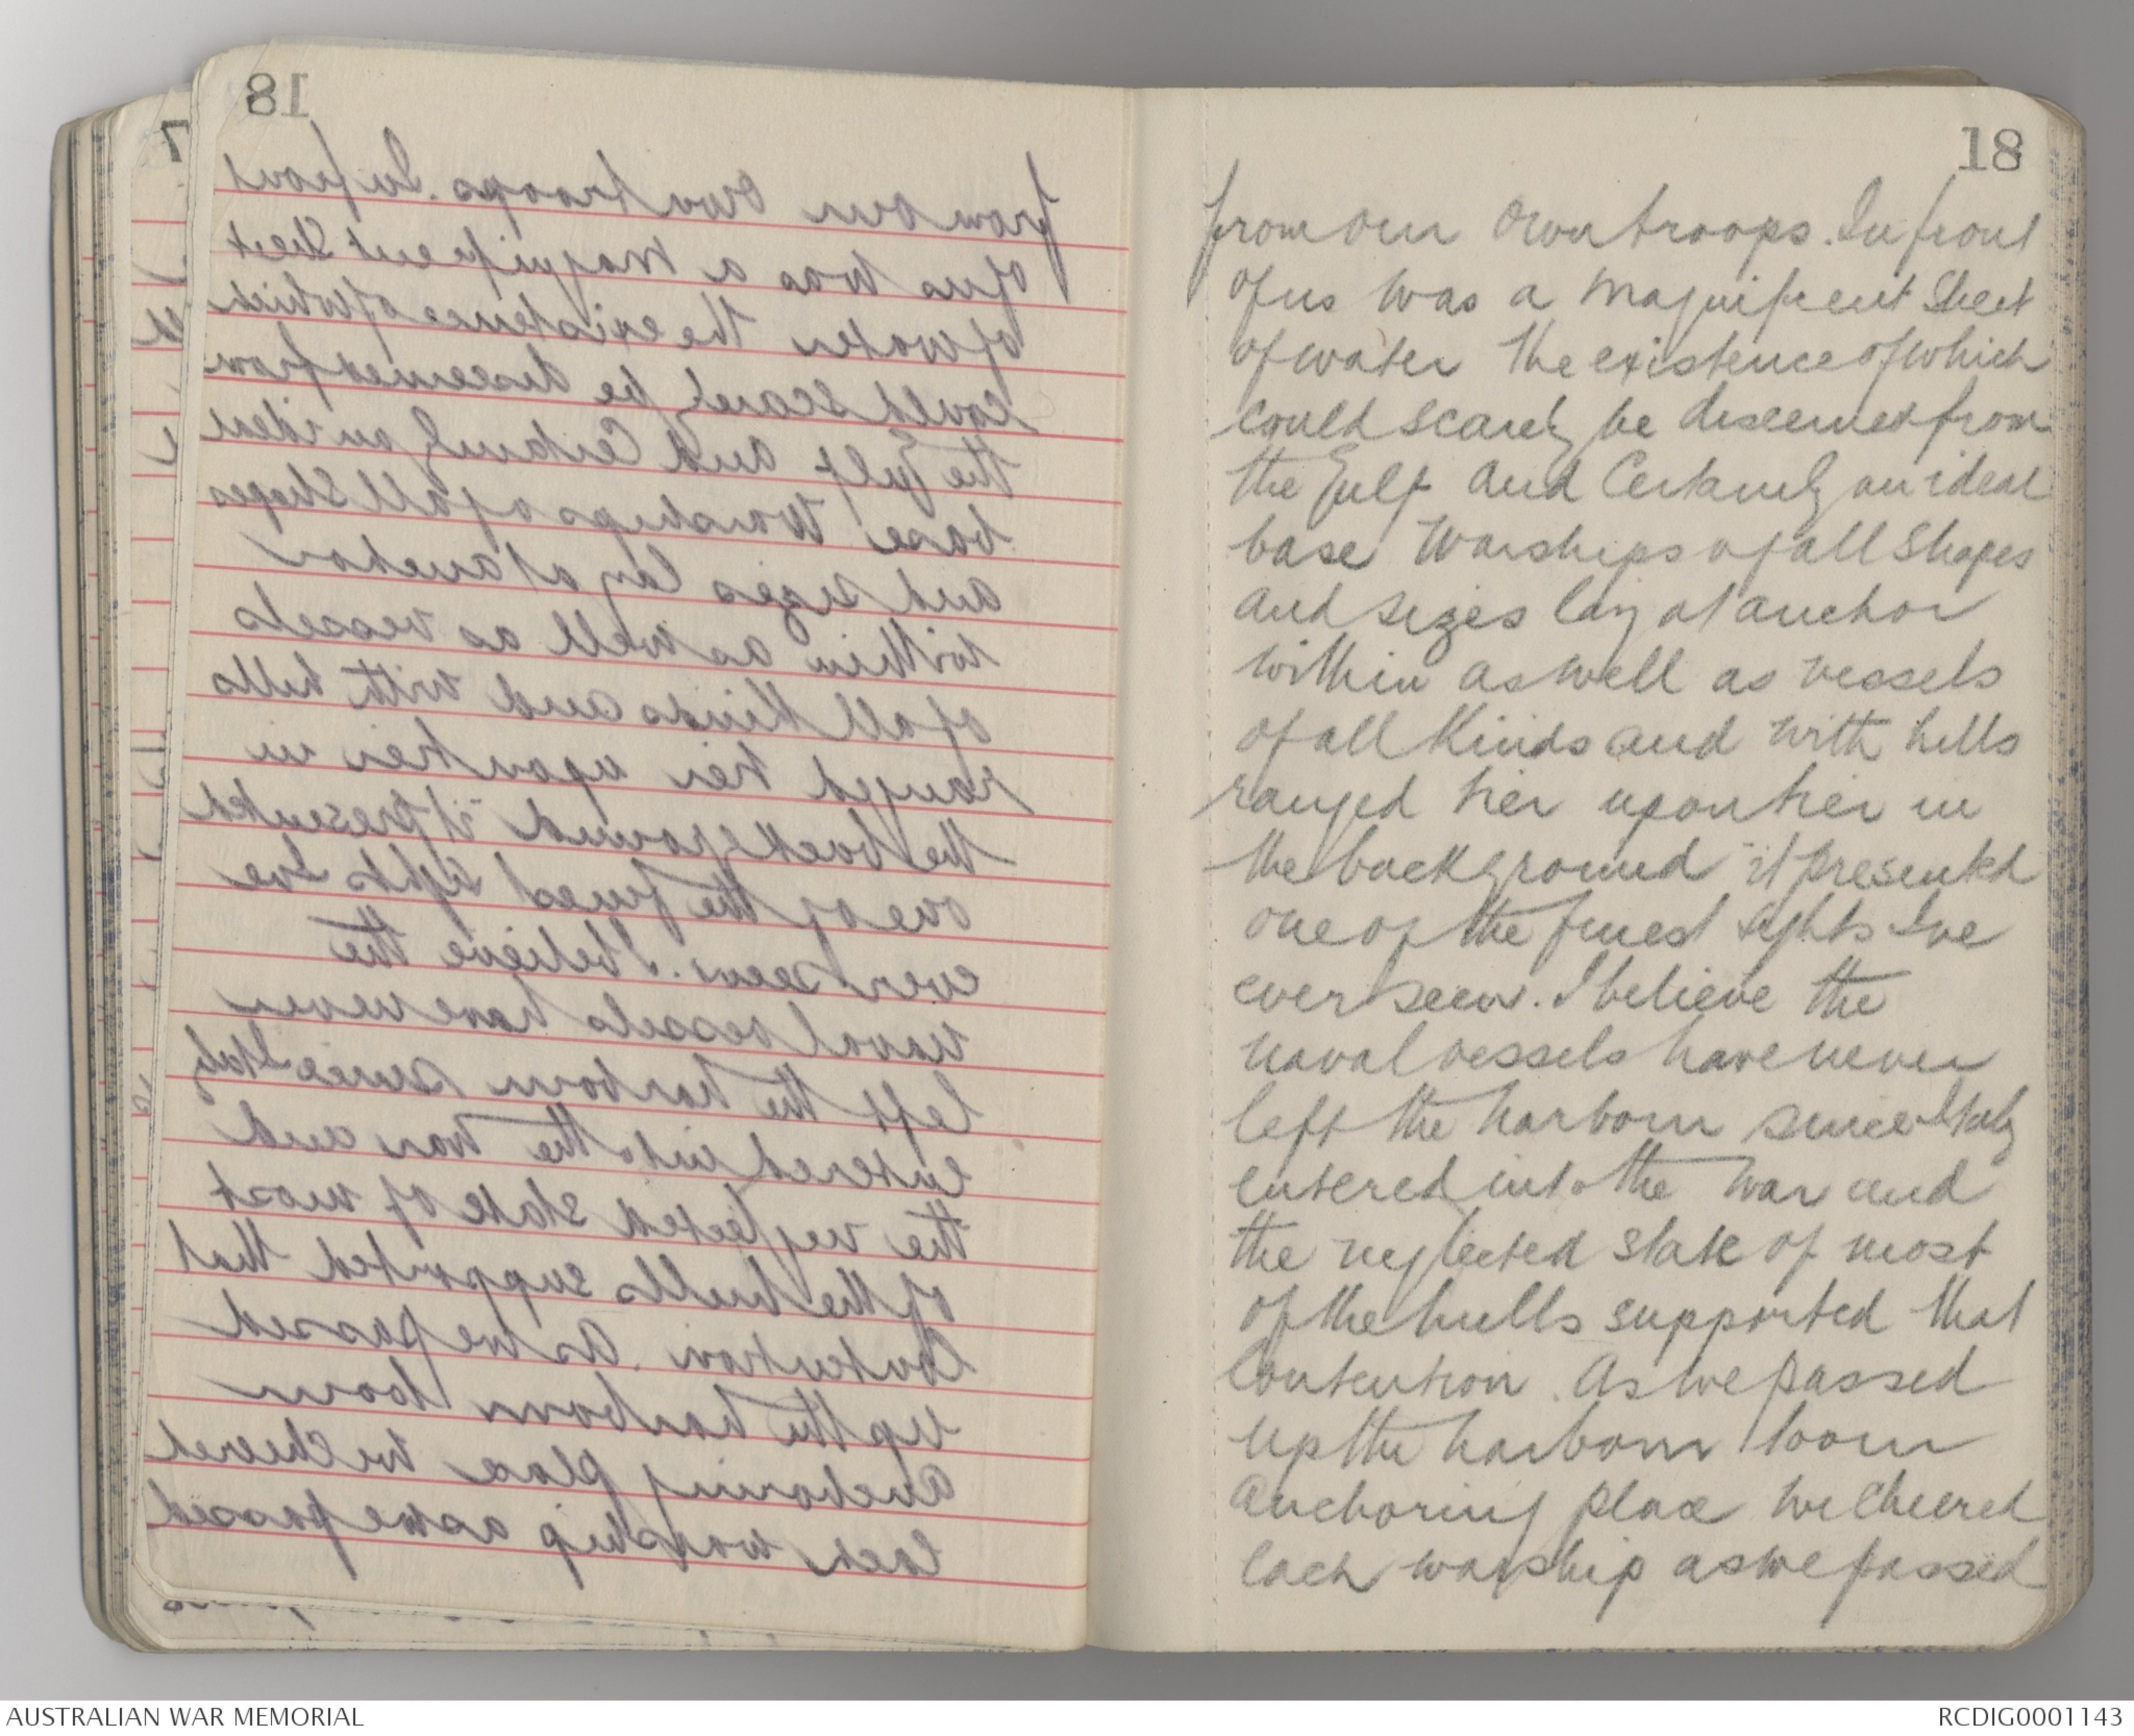 18
from our own troops. In front
of us was a magnificent Sheet
of water the existence of which
could scarcely be discerned from
the Gulf and Certainly an ideal
base Warships of all Shapes
and sizes lay at anchor
within as well as vessels
of all Kinds and with hills
ranged tier upon tier in
the background it presented
one of the finest sights Ive
ever seen. I believe the
naval vessels have never
left the harbour since Italy
entered into the war and
the neglected state of most
of the hulls supported that
Contention. As we passed
up the harbour to our
anchoring place we Cheered
each warship as we passed
AUSTRALIAN WAR MEMORIAL
RCDIG0001143